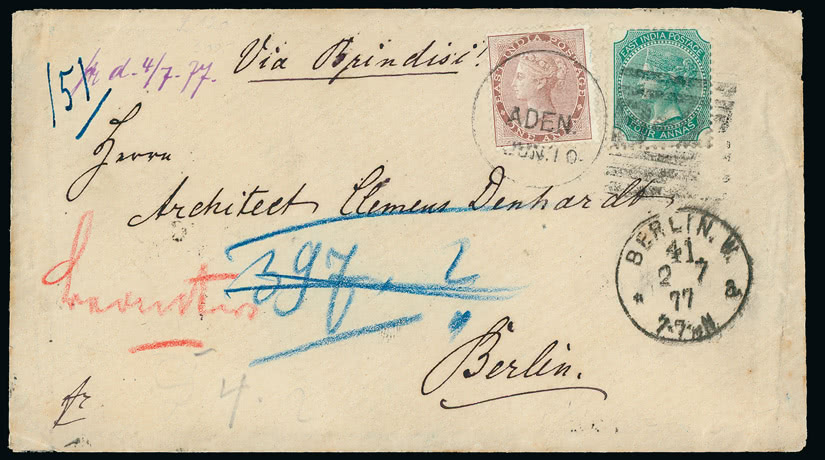 Via Brindisi!
d. 4/7. 77.
151
EAST INDIA POSTAGE
ONE ANNA
EAST INDIA POSTAGE
FOUR ANNAS
ADEN.
JUN. 10.
Herrn
Architect Clemens Denhardt
397. 2
BERLIN. W.
41.
2 7
77
7-7½N
* a
Berlin.
fr
4.